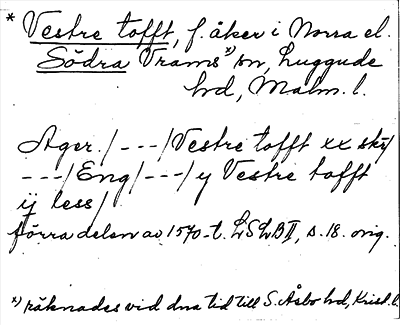 * Vestre tofft, f. åker i Norra el.
Södra Vrams x) sn, Luggude
hd, Malm. l.
Ager / - - - / Vestre tofft xx sk͠y /
- - - / Eng / - - - / y Vestre tofft
ÿ less /
förra delen av 1570-t. LSLB II, s. 18. orig.
x) räknades vid dna tid till S. Åsbo hd, Krist. l.